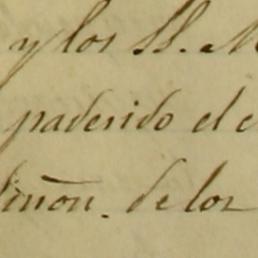 y los SS. M
padesido el e
iñon. de los